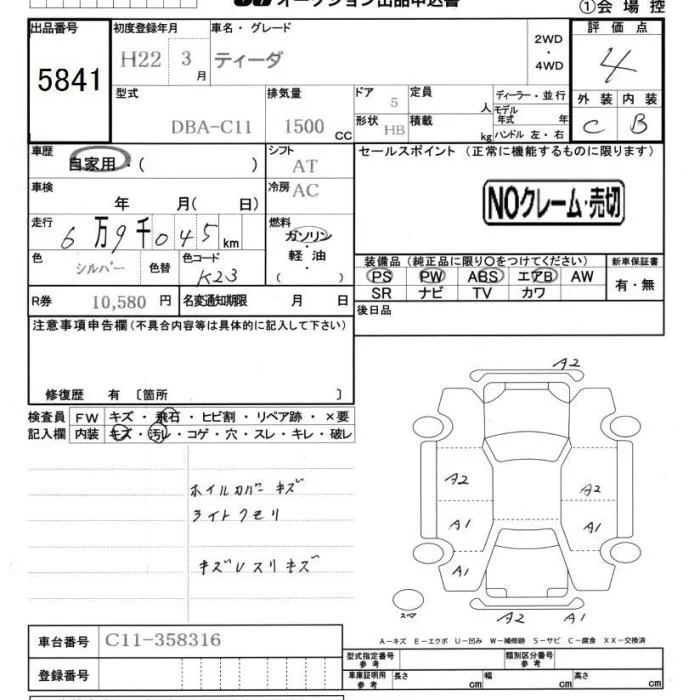 オークション出品申込書
①会場控
出品番号 初度登録年月 車名・グレード 評価点
5841 H22 3月 ティーダ 2WD・4WD 4
型式 排気量 ドア 定員 ディーラー・並行 外装 内装
DBA-C11 1500 CC 5 人 モデル年式 年 C B
形状 HB 積載 kg ハンドル 左・右
車歴 シフト セールスポイント (正常に機能するものに限ります)
自家用・( ) AT
車検 冷房 AC NOクレーム・売切
年 月( 日)
走行 燃料
6万9千045km ガソリン・軽油・( )
色 色コード 装備品(純正品に限り○をつけてください) 新車保証書
シルバー 色替 K23 PS PW ABS エアB AW 有・無
SR ナビ TV カワ
R券 10,580円 名変通知期限 月 日 後日品
注意事項申告欄(不具合内容等は具体的に記入して下さい)
修復歴 有 〔箇所 〕
検査員 FW キズ・飛石・ヒビ割・リペア跡・×要
記入欄 内装 キズ・汚レ・コゲ・穴・スレ・キレ・破レ
ホイルカバーキズ
ライトクモリ
キズレスリキズ
A2
A2 A2
A1 A1
A1
スペア A2 A1
A-キズ E-エクボ U-凹み W-補修跡 S-サビ C-腐食 XX-交換済
車台番号 C11-358316
登録番号
型式指定番号 参考 類別区分番号 参考
車庫証明用 参考 長さ cm 幅 cm 高さ cm